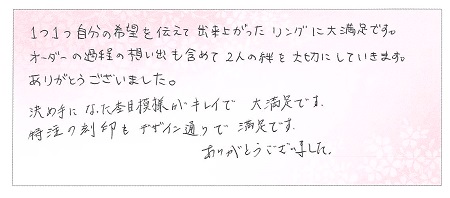 1つ1つ自分の希望を伝えて出来上がったリングに大満足です。
オーダーの過程の想い出も含めて2人の絆を大切にしていきます。
ありがとうございました。
決め手になった杢目模様がキレイで 大満足です.
特注の刻印もデザイン通りで 満足です.
ありがとうございました.